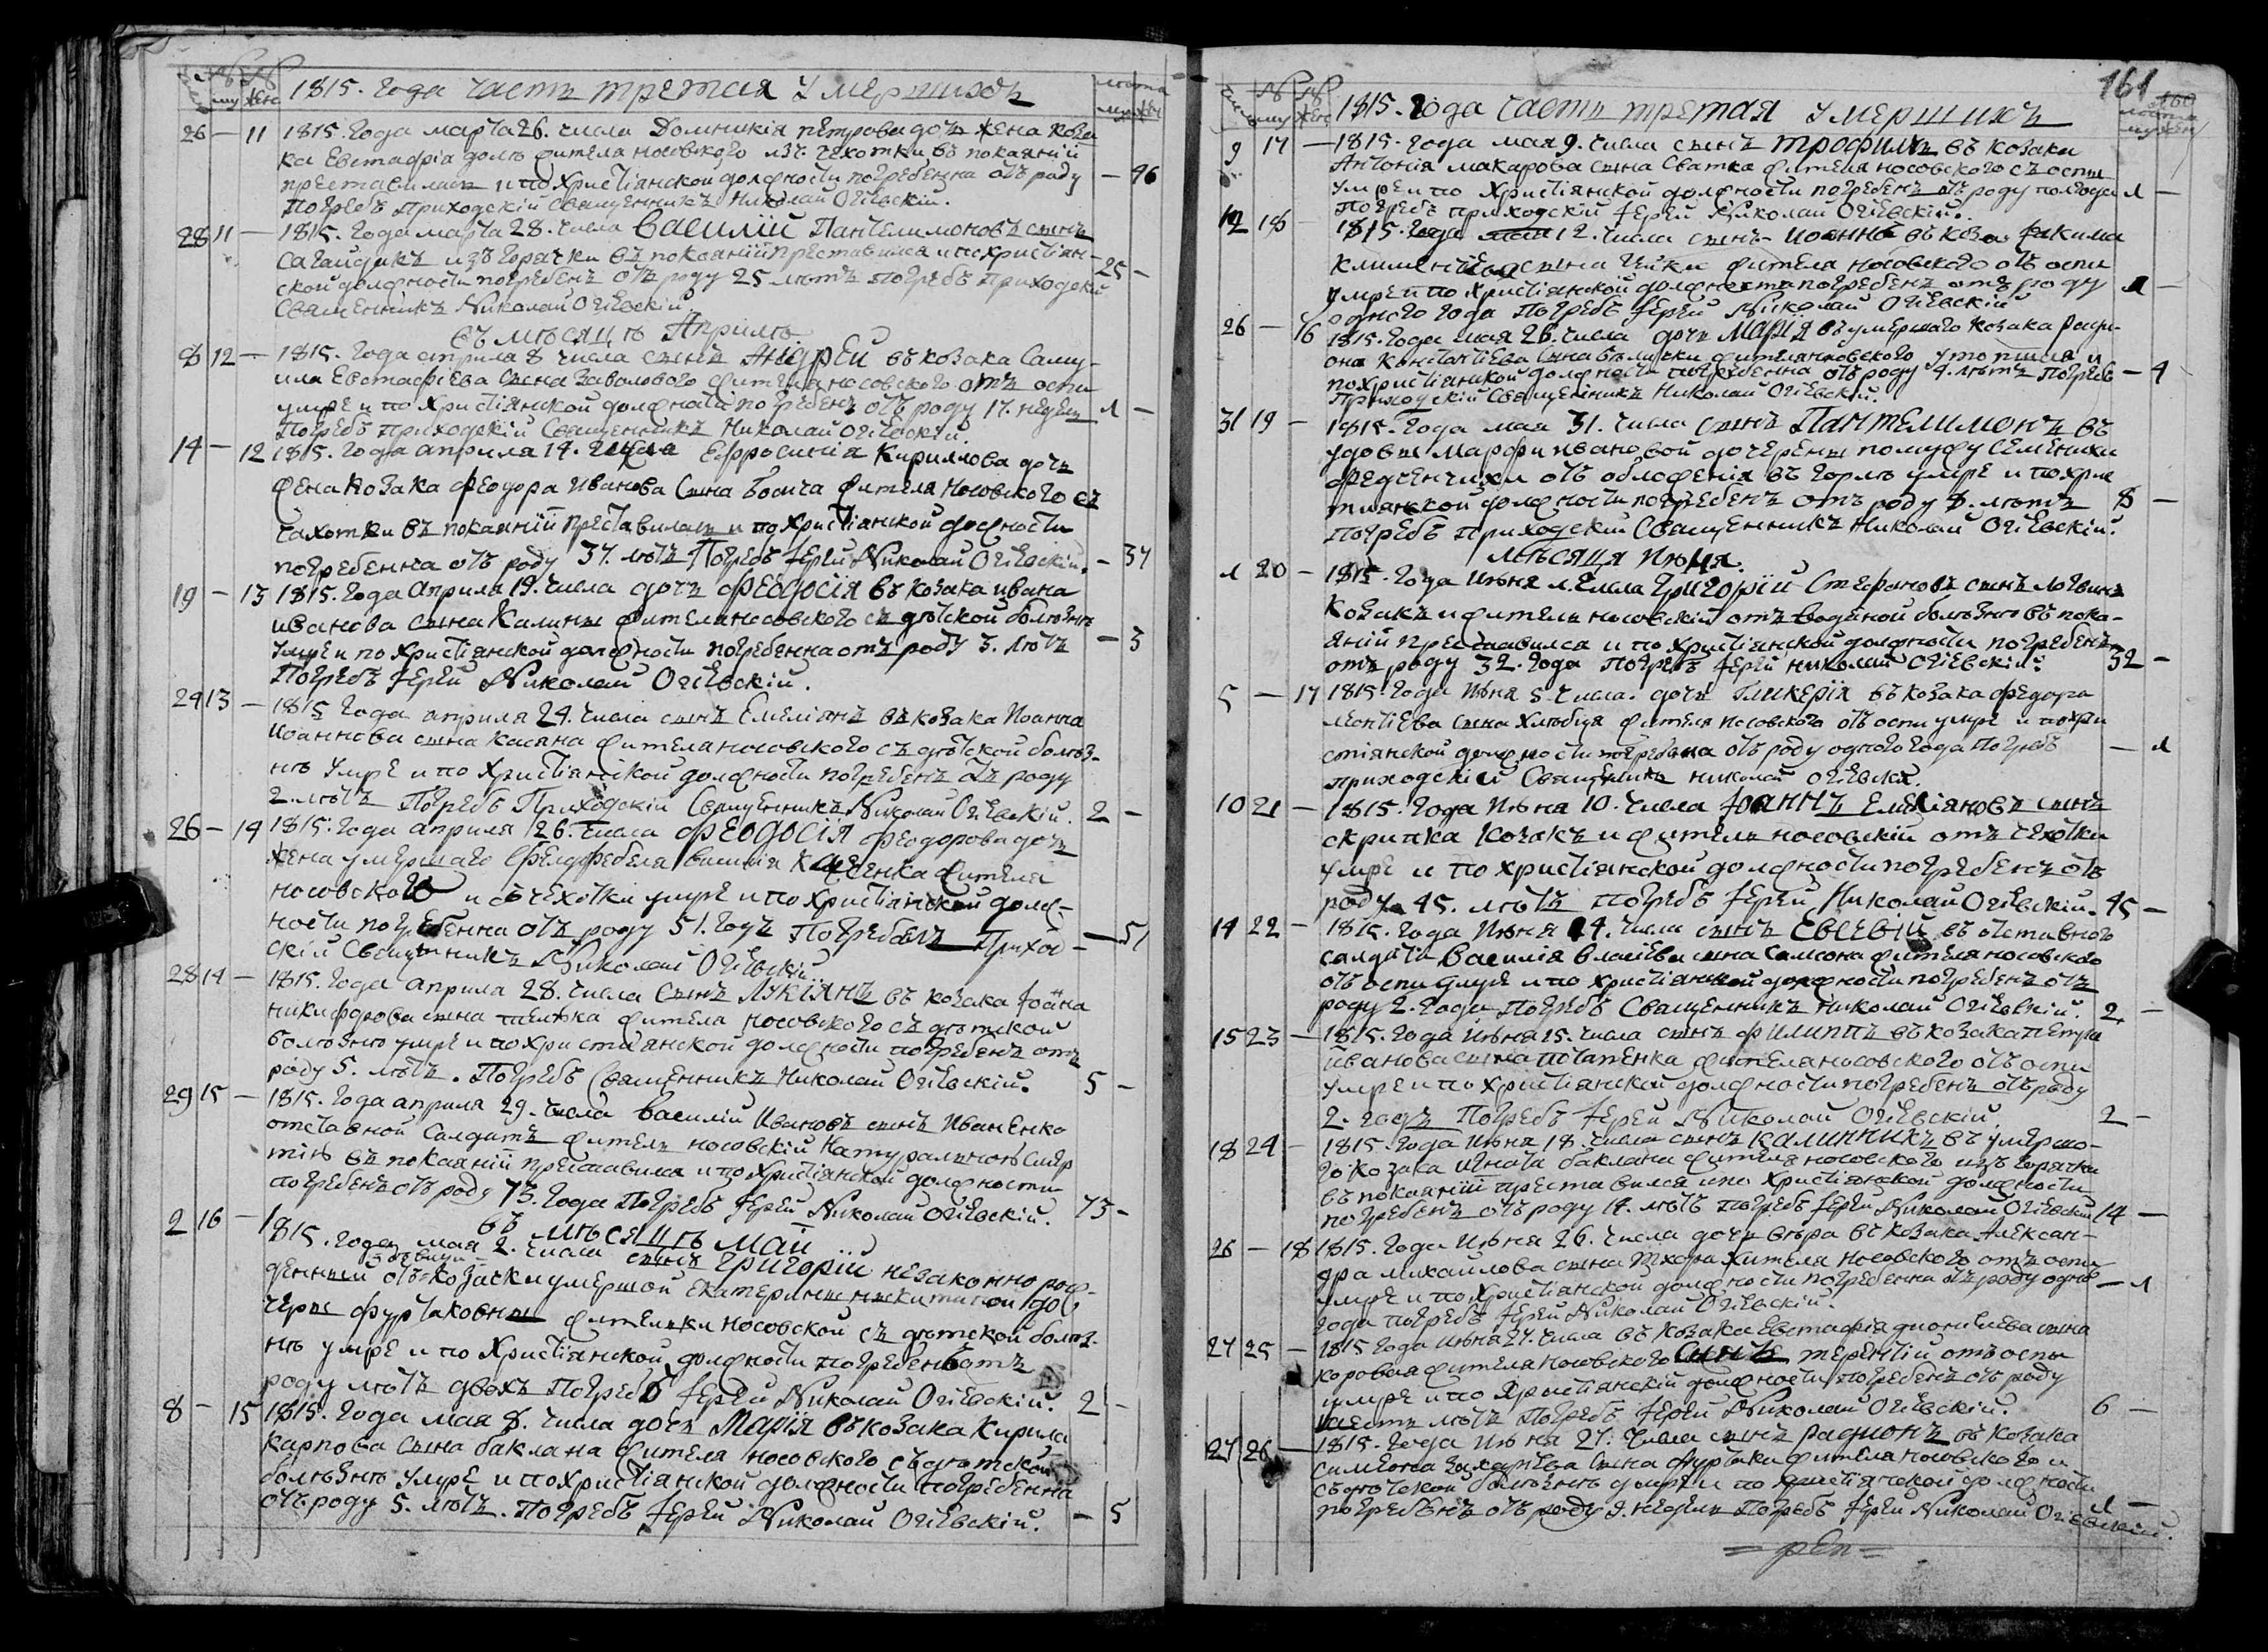 1815. Года часть третая Умершихъ
№ му № жен
лѣта муж жен
26 — 11 1815. Года марта 26. числа Домникія петрова дочь жена коза
ка Евстафіа жителя носовского изъ чехотки въ покаяній
преставилась и по Христіянской должности погребенна отъ роду — 46
Погребъ приходскій Священникъ Николай Огіевскій.
28 11 — 1815. Года марта 28. числа Василій Пантелимоновъ сынъ
Сагайдакъ изъ горячки въ покаяній преставился и по христіян- 25 —
ской должности погребенъ отъ роду 25 лѣтъ погребъ приходскій
Священникъ Николай Огіевскій
въ мѣсяцѣ Априлѣ
8 12 — 1815. Года априла 8 числа сынъ Андрей въ козака Саму-
ила Евстафіева сына жителя носовского отъ оспи
умре и по Христіянской должности погребенъ отъ роду 17. недель 1 —
Погребъ приходскій Священникъ Николай Огіевскій.
14 — 12 1815. Года априла 14. числа Ефросинія Кириллова дочь
жена козака Феодора Иванова сына жителя носовского съ
чахотки въ покаяній преставилась и по христіянской должности
погребенна отъ роду 37. лѣтъ Погребъ Іерей Николай Огіевскій. — 37
19 — 13 1815. Года априла 19. числа дочь Феодосія въ козака ивана
иванова сына Калины жителя носовского съ дѣтской болѣзнѣ
умре и по христіянской должности погребенна отъ роду 3. лѣтъ — 3
Погребъ Іерей Николай Огіевскій.
24 13 — 1815 Года априля 24. числа сынъ Емеліянъ въ козака Иоанна
Иоаннова сына Касяна жителя носовского съ дѣтской болѣз-
нѣ умре и по Христіянской должности погребенъ отъ роду
2. лѣтъ Погребъ Приходскій Священникъ Николай Огіевскій. 2 —
26 — 14 1815. Года априля 26. числа Феодосія Феодорова дочь
жена умершаго Фелдфебела василія жителя
носовского и съ чехотки умре и по Христіянской долж-
ности погребенна отъ роду 51. годъ Погребенъ Приход — 51
скій Священникъ Николай Огіевскій
28 14 — 1815. Года априла 28. числа сынъ Лукіянъ въ козака Іоанна
никифорова сына жителя носовского съ дѣтской
болѣзнѣ умре и по христіянской должности погребенъ отъ
роду 5. лѣтъ. Погребъ Священникъ Николай Огіевскій. 5 —
29 15 — 1815. Года априля 29. числа Василій Ивановъ сынъ Иваненко
отставной Салдатъ житель носовскій Натуралною смер
тію въ покаяній преставился и по Христіянской должности
погребенъ отъ роду 73. года Погребъ Іерей Николай Огіевскій. 73 —
въ мѣсяцѣ май
2 16 — 1815. года мая 2. числа сынъ Григорій незаконно рож-
денный отъ козачки умершой Екатерины никитиной до
черы Фурсаковны жителки носовской съ дѣтской болѣз-
нѣ умре и по Христіянской должности погребенъ отъ
роду лѣтъ двохъ Погребъ Іерей Николай Огіевскій. 2 —
8 — 15 1815. Года мая 8. числа дочь Марія въ козака Кирила
карпова сына баклана жителя носовского съ дѣтской
болѣзнѣ умре и по христіянской должности погребенна
отъ роду 5. лѣтъ. Погребъ Іерей Николай Огіевскій. — 5
161
160
1815. Года часть третая умершихъ
№ му № жен
лѣта муж жен
9 17 — 1815. Года мая 9. числа сынъ Трофимъ въ козака
Антонія макарова сына Сватка жителя носовского съ оспи
умре и по Христіянской должности погребенъ отъ роду полгода 1 —
Погребъ приходскій Іерей Николай Огіевскій.
12 18 1815. Года мая 12. числа сынъ Иоаннъ въ коза Іакима
Климентіева сына жителя носовского отъ оспи
умре и по Христіянской должности погребенъ отъ роду 1 —
одного года Погребъ Іерей Николай Огіевскій
26 — 16 1815. Года мая 26. числа дочь Марія въ умершаго козака
Константіева сына жителя носовского утопился и
по христіянской должности погребенна отъ роду 4. лѣтъ Погребъ — 4
Приходскій Священникъ Николай Огіевскій.
31 19 — 1815. Года мая 31. числа сынъ Пантелимонъ въ
удовы Марфи ивановой дочерены по мужу Семенихи
Федченчихи отъ обложенія въ горлѣ умре и по хрис
тіянской должности погребенъ отъ роду 8. лѣтъ 8 —
погребъ приходскій Священникъ Николай Огіевскій.
мѣсяця Июня.
1 20 — 1815. Года Июня 1. числа Григорій Стефановъ сынъ Логвинъ
Козакъ и житель носовскій отъ водяной болѣзнѣ въ пока-
яній преставился и по христіянской должности погребенъ
отъ роду 32. года погребъ Іерей Николай Огіевскій. 32 —
5 — 17 1815. Года Июня 5. числа. дочь Гликерія въ козака Федора
Леонтіева сына Хлѣбця жителя носовского отъ оспи умре и по хри
стіянской должности погребенна отъ роду одного года Погребъ — 1
приходскій Священникъ Николай Огіевскій.
10 21 — 1815. Года Июня 10. числа Іоаннъ Емеліяновъ сынъ
скрипка козакъ и житель носовскій отъ чехотки
умре и по христіянской должности погребенъ отъ
роду 45. лѣтъ погребъ Іерей Николай Огіевскій. 45 —
14 22 — 1815. Года Июня 14. числа сынъ Евсевій въ отставного
салдата Василія власіева сына Самсона жителя носовского
отъ оспи умре и по христіянской должности погребенъ отъ
роду 2. годи Погребъ Священникъ Николай Огіевскій. 2 —
15 23 — 1815. Года Июня 15. числа сынъ Филиппъ въ козака петра
иванова сына потапенка жителя носовского отъ оспи
умре и по христіянской должности погребенъ отъ роду
2. годъ Погребъ Іерей Николай Огіевскій. 2 —
18 24 — 1815. Года Июня 18. числа сынъ Калинникъ въ умершо-
го козака игната баклана жителя носовского изъ горячки
въ покаяній преставился и по Христіянской должности
погребенъ отъ роду 14. лѣтъ погребъ Іерей Николай Огіевскій 14 —
26 — 18 1815. Года Июня 26. числа дочь вѣра въ козака Алексан-
дра михаилова сына Тхора жителя носовского отъ оспи
умре и по Христіянской должности погребенна отъ роду одно — 1
года погребъ Іерей Николай Огіевскій.
27 25 — 1815 Года Июня 27. числа въ козака Евстафія діонисіева сына
коровая жителя носовского сынъ терентій отъ оспы
умре и по Христіянскій должности погребенъ отъ роду
шесть лѣтъ Погребъ Іерей Николай Огіевскій. 6 —
27 26 — 1815. Года Июня 27. числа сынъ радионъ въ козака
симеона Захаріева сына Фурсаки жителя носовского и
съ дѣтской болѣзнѣ умре и по христіянской должности
погребенъ отъ роду 9. недель Погребъ Іерей Николай Огіевскій. 1 —